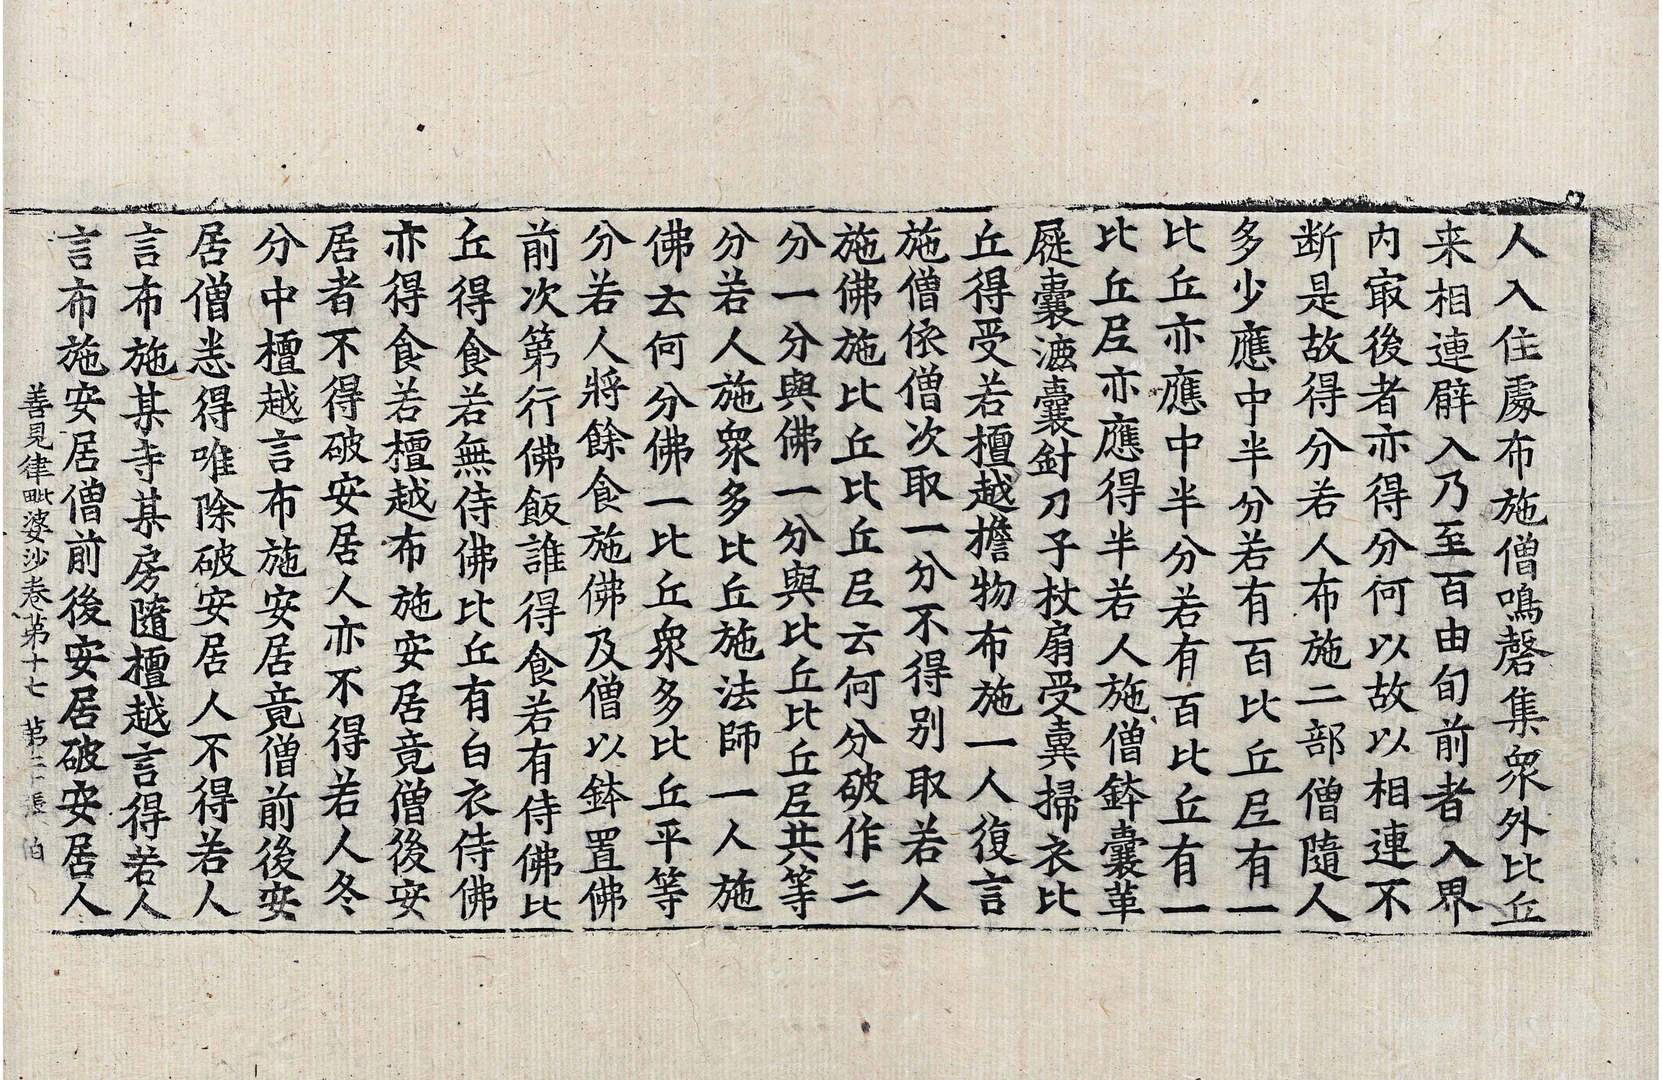 人入住處布施僧鳴磬集衆外比丘
来相連臂入乃至百由旬前者入界
内㝡後者亦得分何以故以相連不
断是故得分若人布施二部僧隨人
多少應中半分若有百比丘尼有一
比丘亦應中半分若有百比丘有一
比丘尼亦應得半若人施僧鉢囊革
屣囊漉囊針刀子杖扇受糞掃衣比
丘得受若檀越擔物布施一人復言
施僧依僧次取一分不得別取若人
施佛施比丘比丘尼云何分破作二
分一分與佛一分與比丘比丘尼共等
分若人施衆多比丘施法師一人施
佛云何分佛一比丘衆多比丘平等
分若人將餘食施佛及僧以鉢置佛
前次第行佛飯誰得食若有侍佛比
丘得食若無侍佛比丘有白衣侍佛
亦得食若檀越布施安居竟僧後安
居者不得破安居人亦不得若人冬
分中檀越言布施安居竟僧前後安
居僧悉得唯除破安居人不得若人
言布施某寺某房隨檀越言得若人
言布施安居僧前後安居破安居人
善見律毗婆沙卷第十七 第二十張 伯